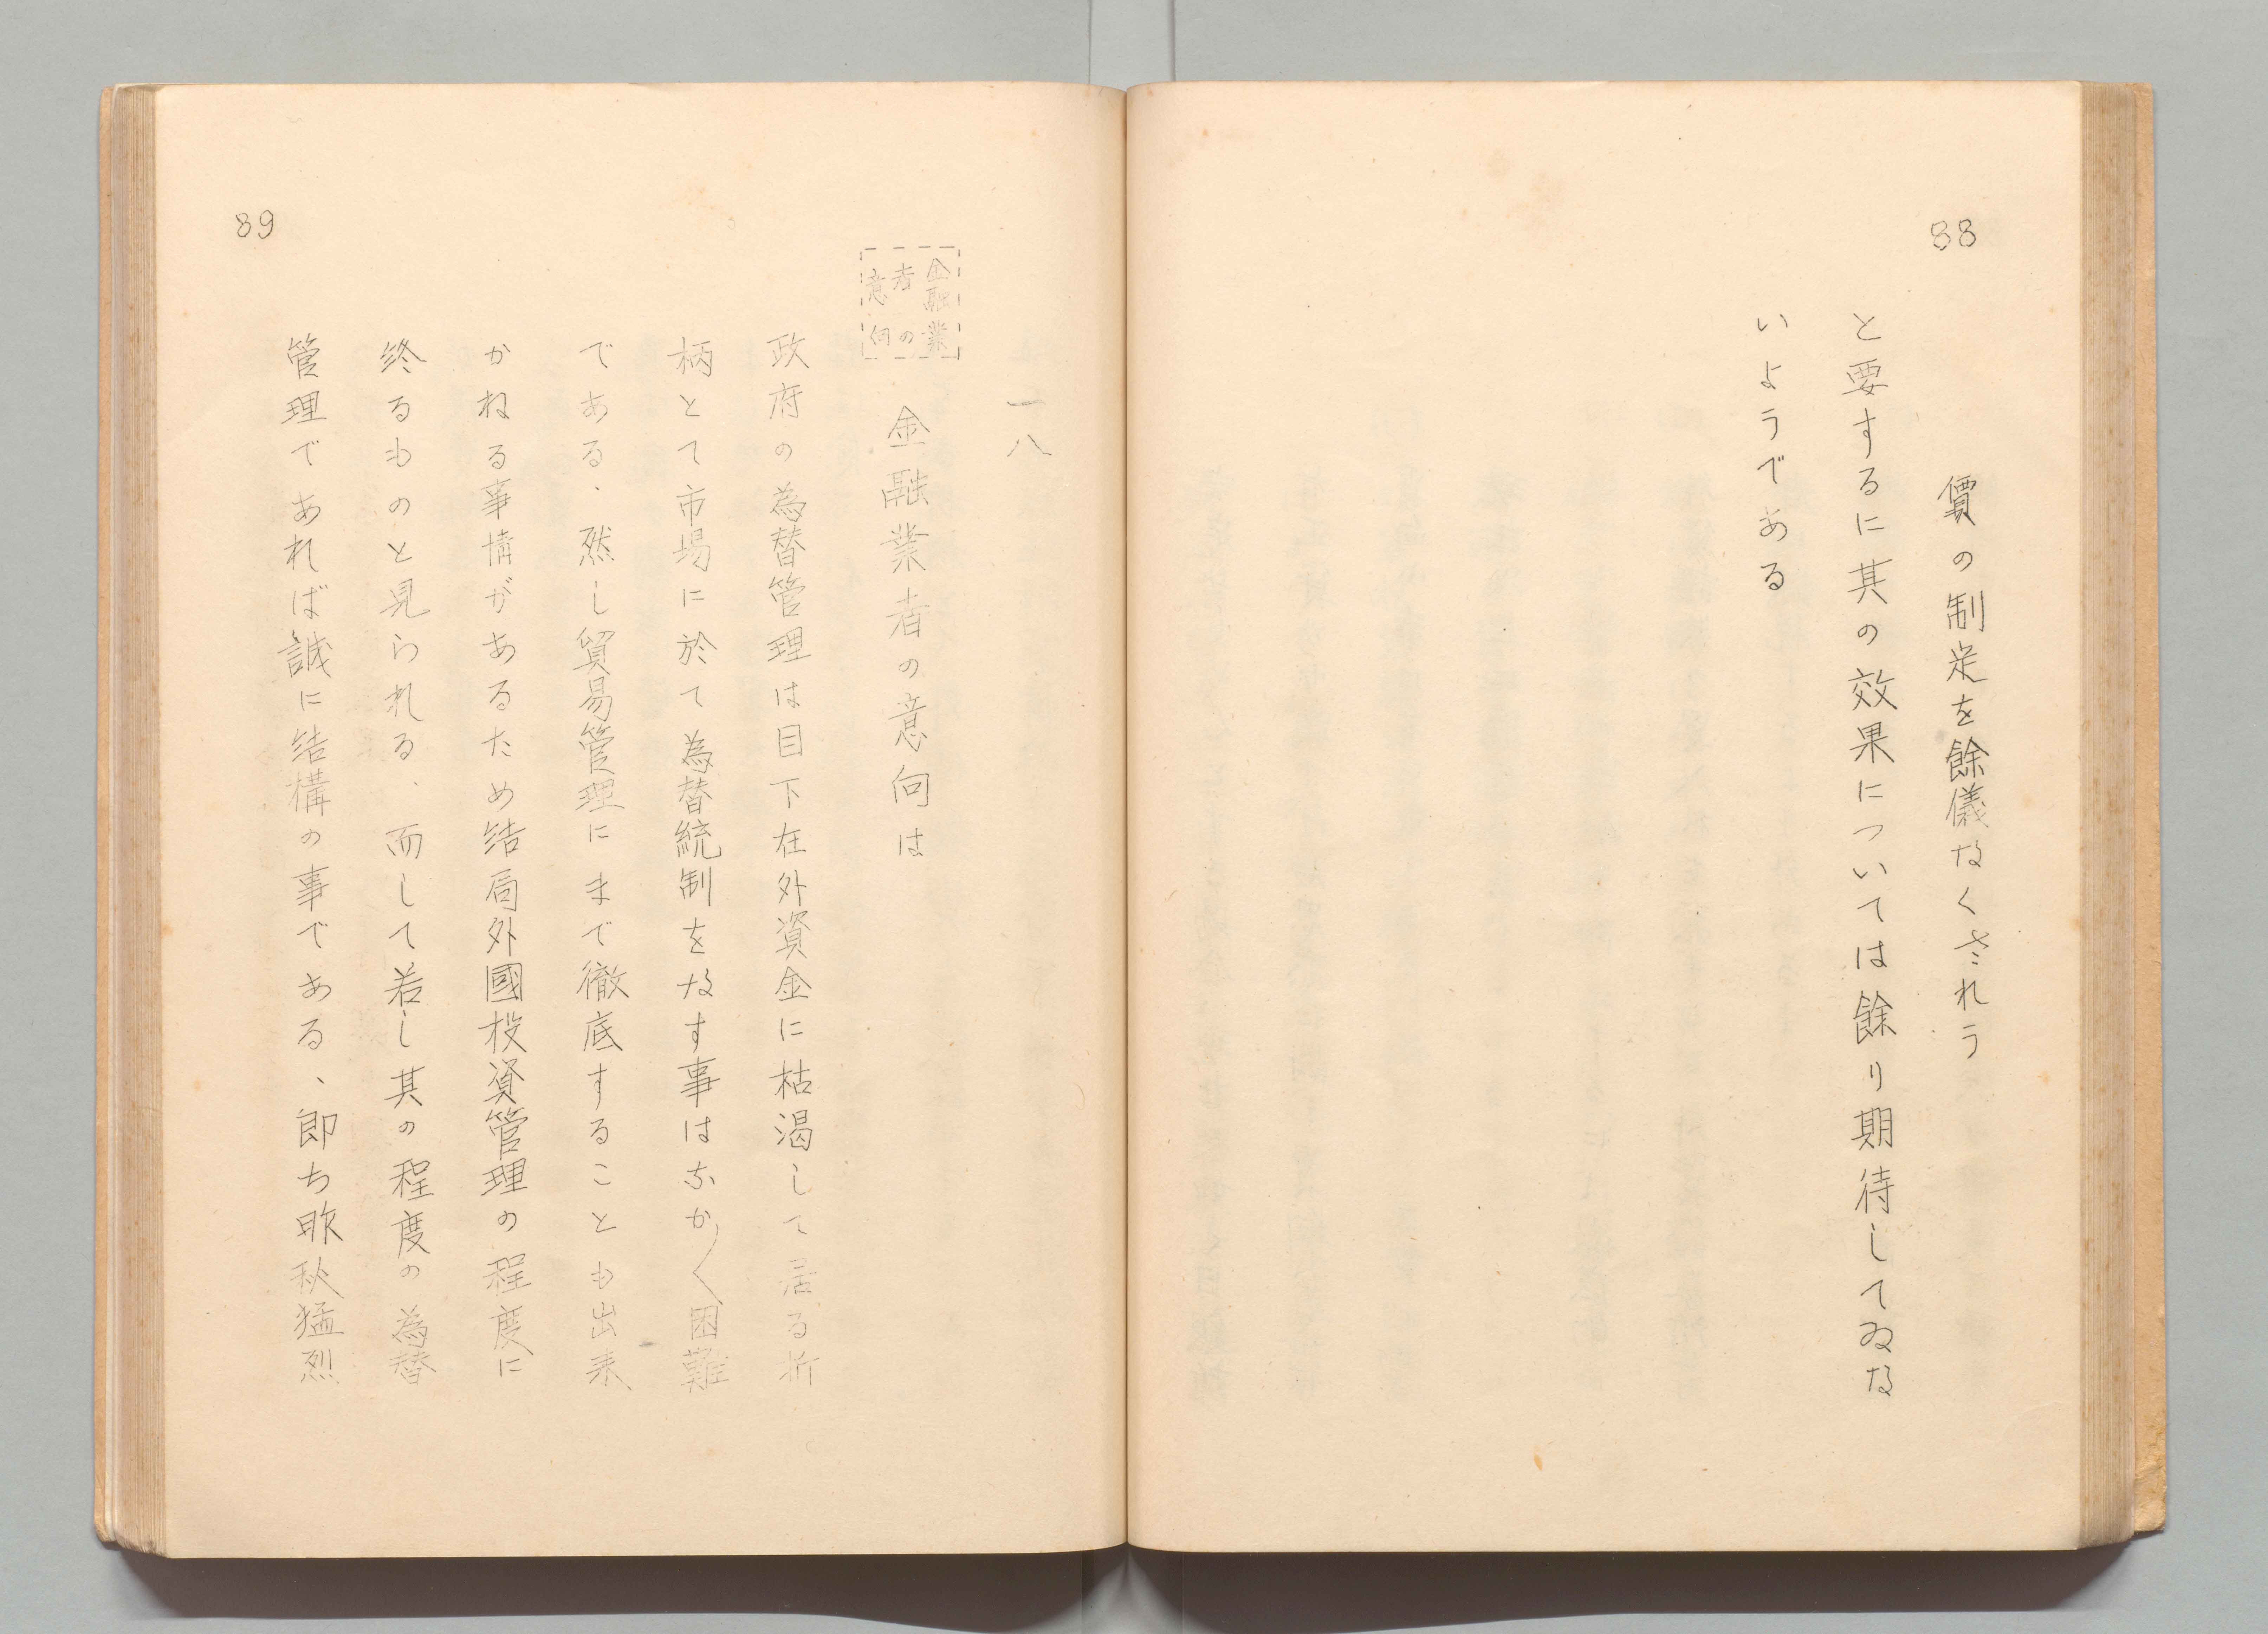 88
價の制定を餘儀なくされう
と要するに其の效果については餘り期待してゐな
いようである
89
一八
金融業
者の
意向
金融業者の意向は
政府の為替管理は目下在外資金に枯渇して居る折
柄とて市場に於て為替統制をなす事はなか〱困難
である、然し貿易管理にまで徹底することも出来
かねる事情があるため結局外國投資管理の程度に
終るものと見られる、而して若し其の程度の為替
管理であれば誠に結構の事である、即ち昨秋猛烈